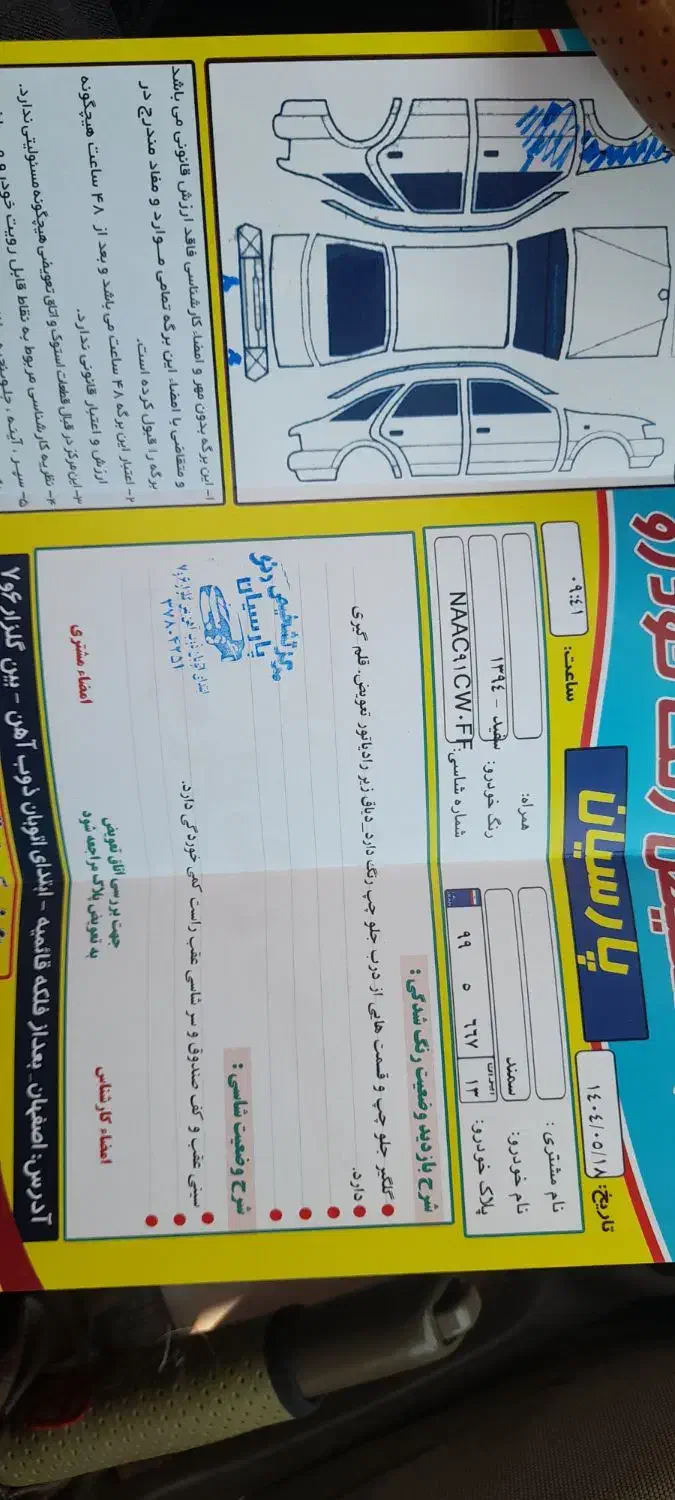 پارسیان
تاریخ: ۱٤۰٤/۰٥/۱۸
ساعت: ۰۹:٤۱
نام مشتری :
نام خودرو: سمند
پلاک خودرو: ۱۳ ٦٦۷ ٥ ۹۹
همراه:
رنگ خودرو: سفید - ۱۳۹٤
شماره شاسی: NAAC۹۱CW۰FF
شرح بازدید وضعیت رنگ شدگی :
گلگیر جلو چپ و قسمت هایی از درب جلو چپ رنگ دارد_دیاق زیر رادیاتور تعویض، قلم گیری
دارد.
شرح وضعیت شاسی :
سینی عقب و کف صندوق و سر شاسی عقب راست کمی خوردگی دارد.
مرکز تشخیص رنگ
پارسیان
امضاء کارشناس
جهت بررسی اتاق تعویض
به تعویض پلاک مراجعه شود
امضاء مشتری
آدرس: اصفهان - بعداز فلکه قائمیه - ابتدای اتوبان ذوب آهن - بین گلزار ۶ و ۷
۱- این برگه بدون مهر و امضاء کارشناسی فاقد ارزش قانونی می باشد
و متقاضی با امضاء این برگه تمامی مــوارد و مفاد مندرج در
برگه را قبول کرده است.
۲- اعتبار این برگه ۴۸ ساعت می باشد و بعد از ۴۸ ساعت هیچگونه
ارزش و اعتبار قانونی ندارد.
۳- این مرکز در قبال قطعات استوک و اتاق تعویضی هیچگونه مسئولیتی ندارد.
۴- نظریه کارشناسی مربوط به نقاط قابل رویت خودرو
۵- سپر ، آینه ، جلوپنجره